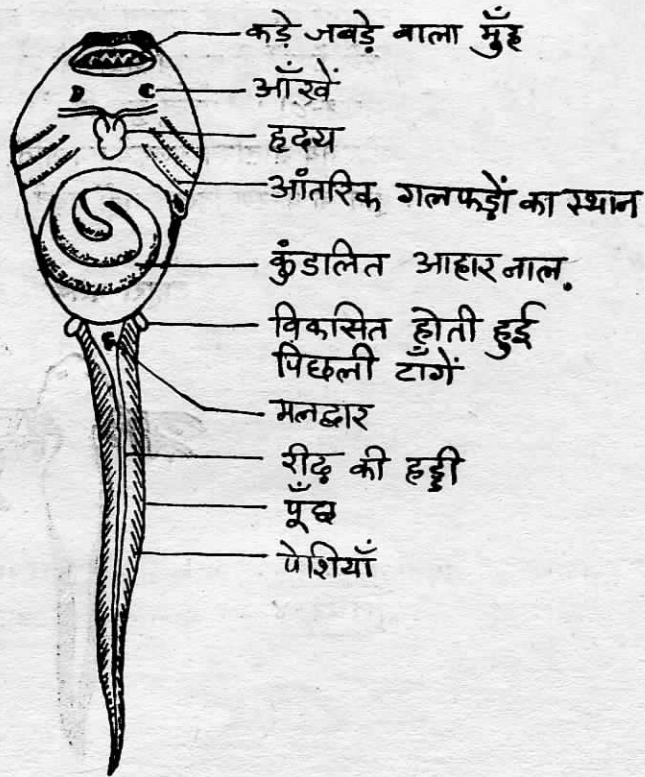 कड़े जबड़े वाला मुँह
आँखें
हृदय
आंतरिक गलफड़ों का स्थान
कुंडलित आहार नाल.
विकसित होती हुई
पिछली टाँगें
मलद्वार
रीढ़ की हड्डी
पूँछ
पेशियाँ